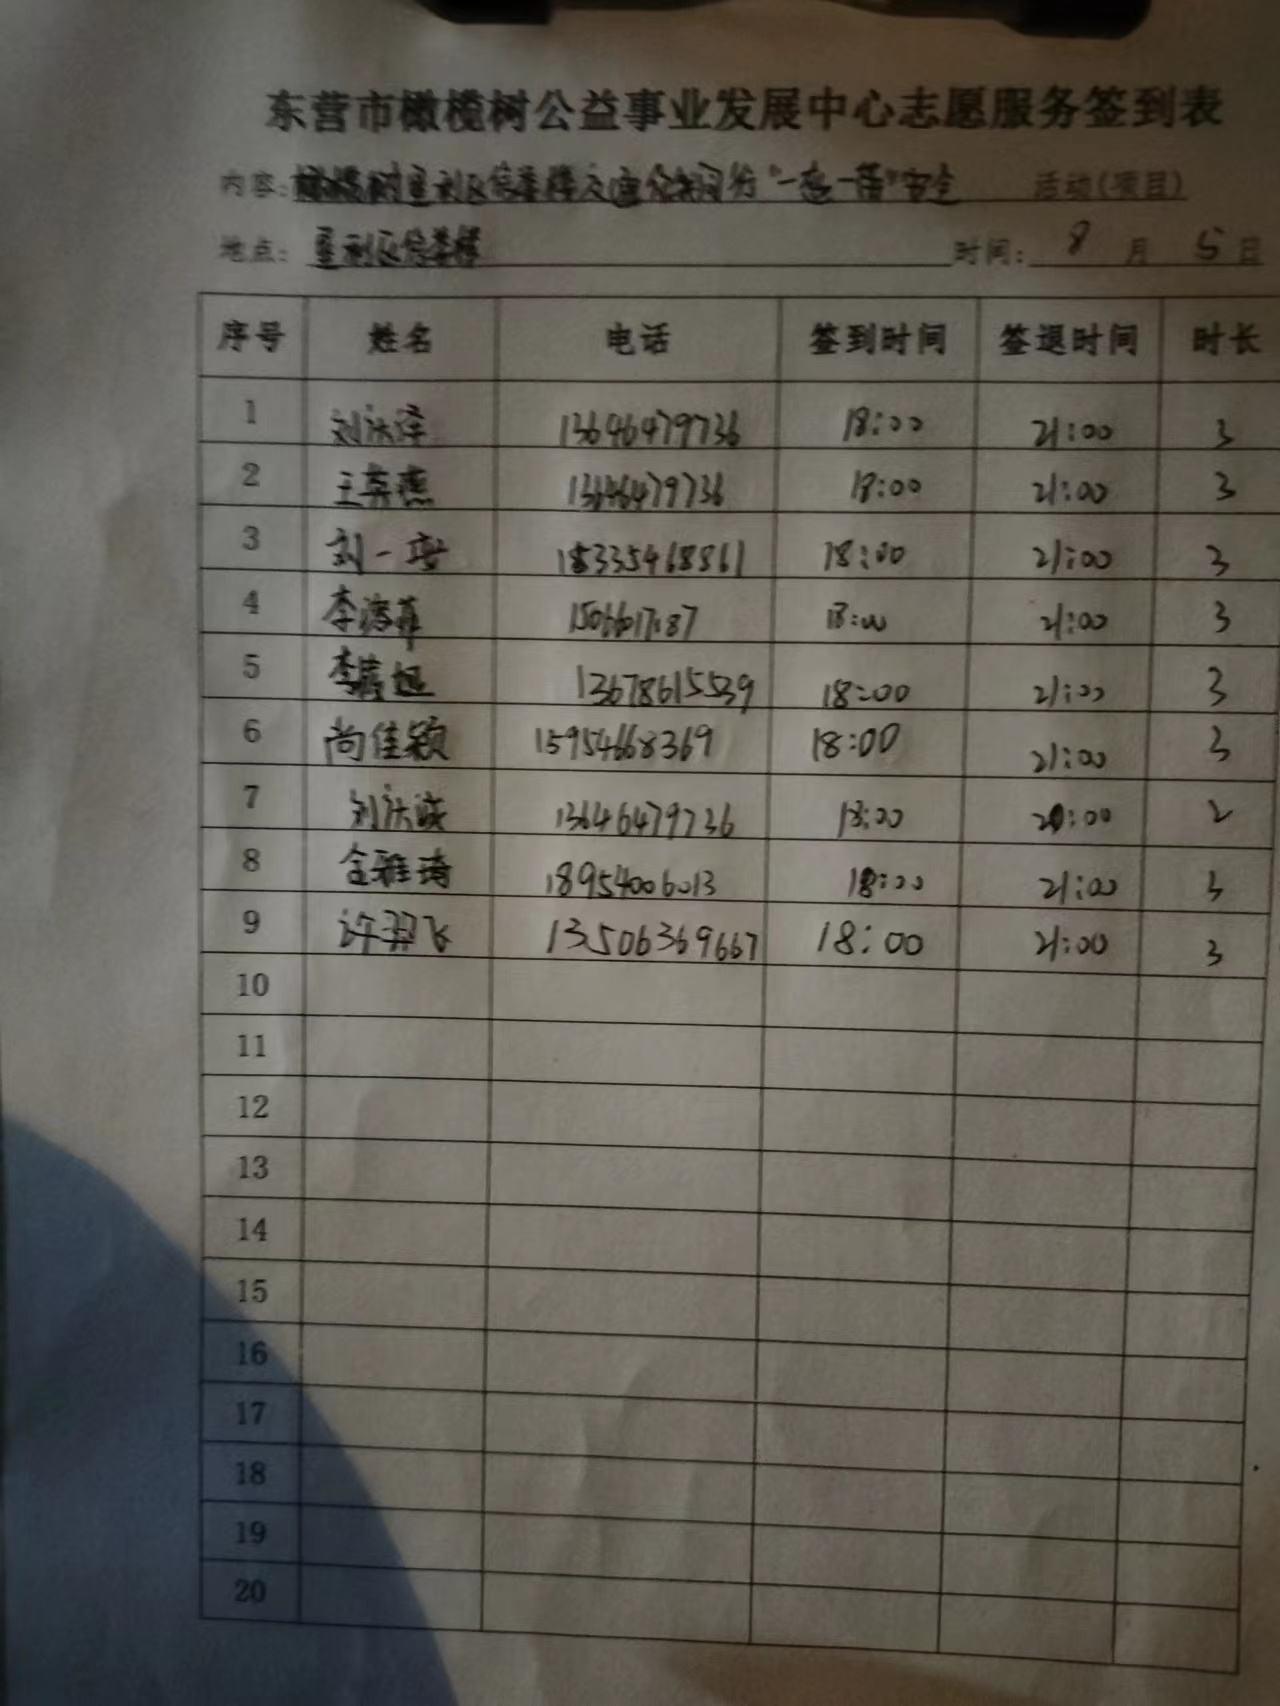 东营市橄榄树公益事业发展中心志愿服务签到表
内容: 垦利区 "一盔一带"安全 活动(项目)
地点: 垦利区 时间: 8 月 5 日
序号 姓名 电话 签到时间 签退时间 时长
1 刘沃泽 13646479736 18:00 21:00 3
2 王英燕 13646479736 18:00 21:00 3
3 刘一 18335468861 18:00 21:00 3
4 李 18:00 21:00 3
5 李 13678615539 18:00 21:00 3
6 尚佳颖 15954668369 18:00 21:00 3
7 刘沃 13646479736 18:00 20:00 2
8 金雅琦 18954006013 18:00 21:00 3
9 许羽飞 13506369667 18:00 21:00 3
10
11
12
13
14
15
16
17
18
19
20